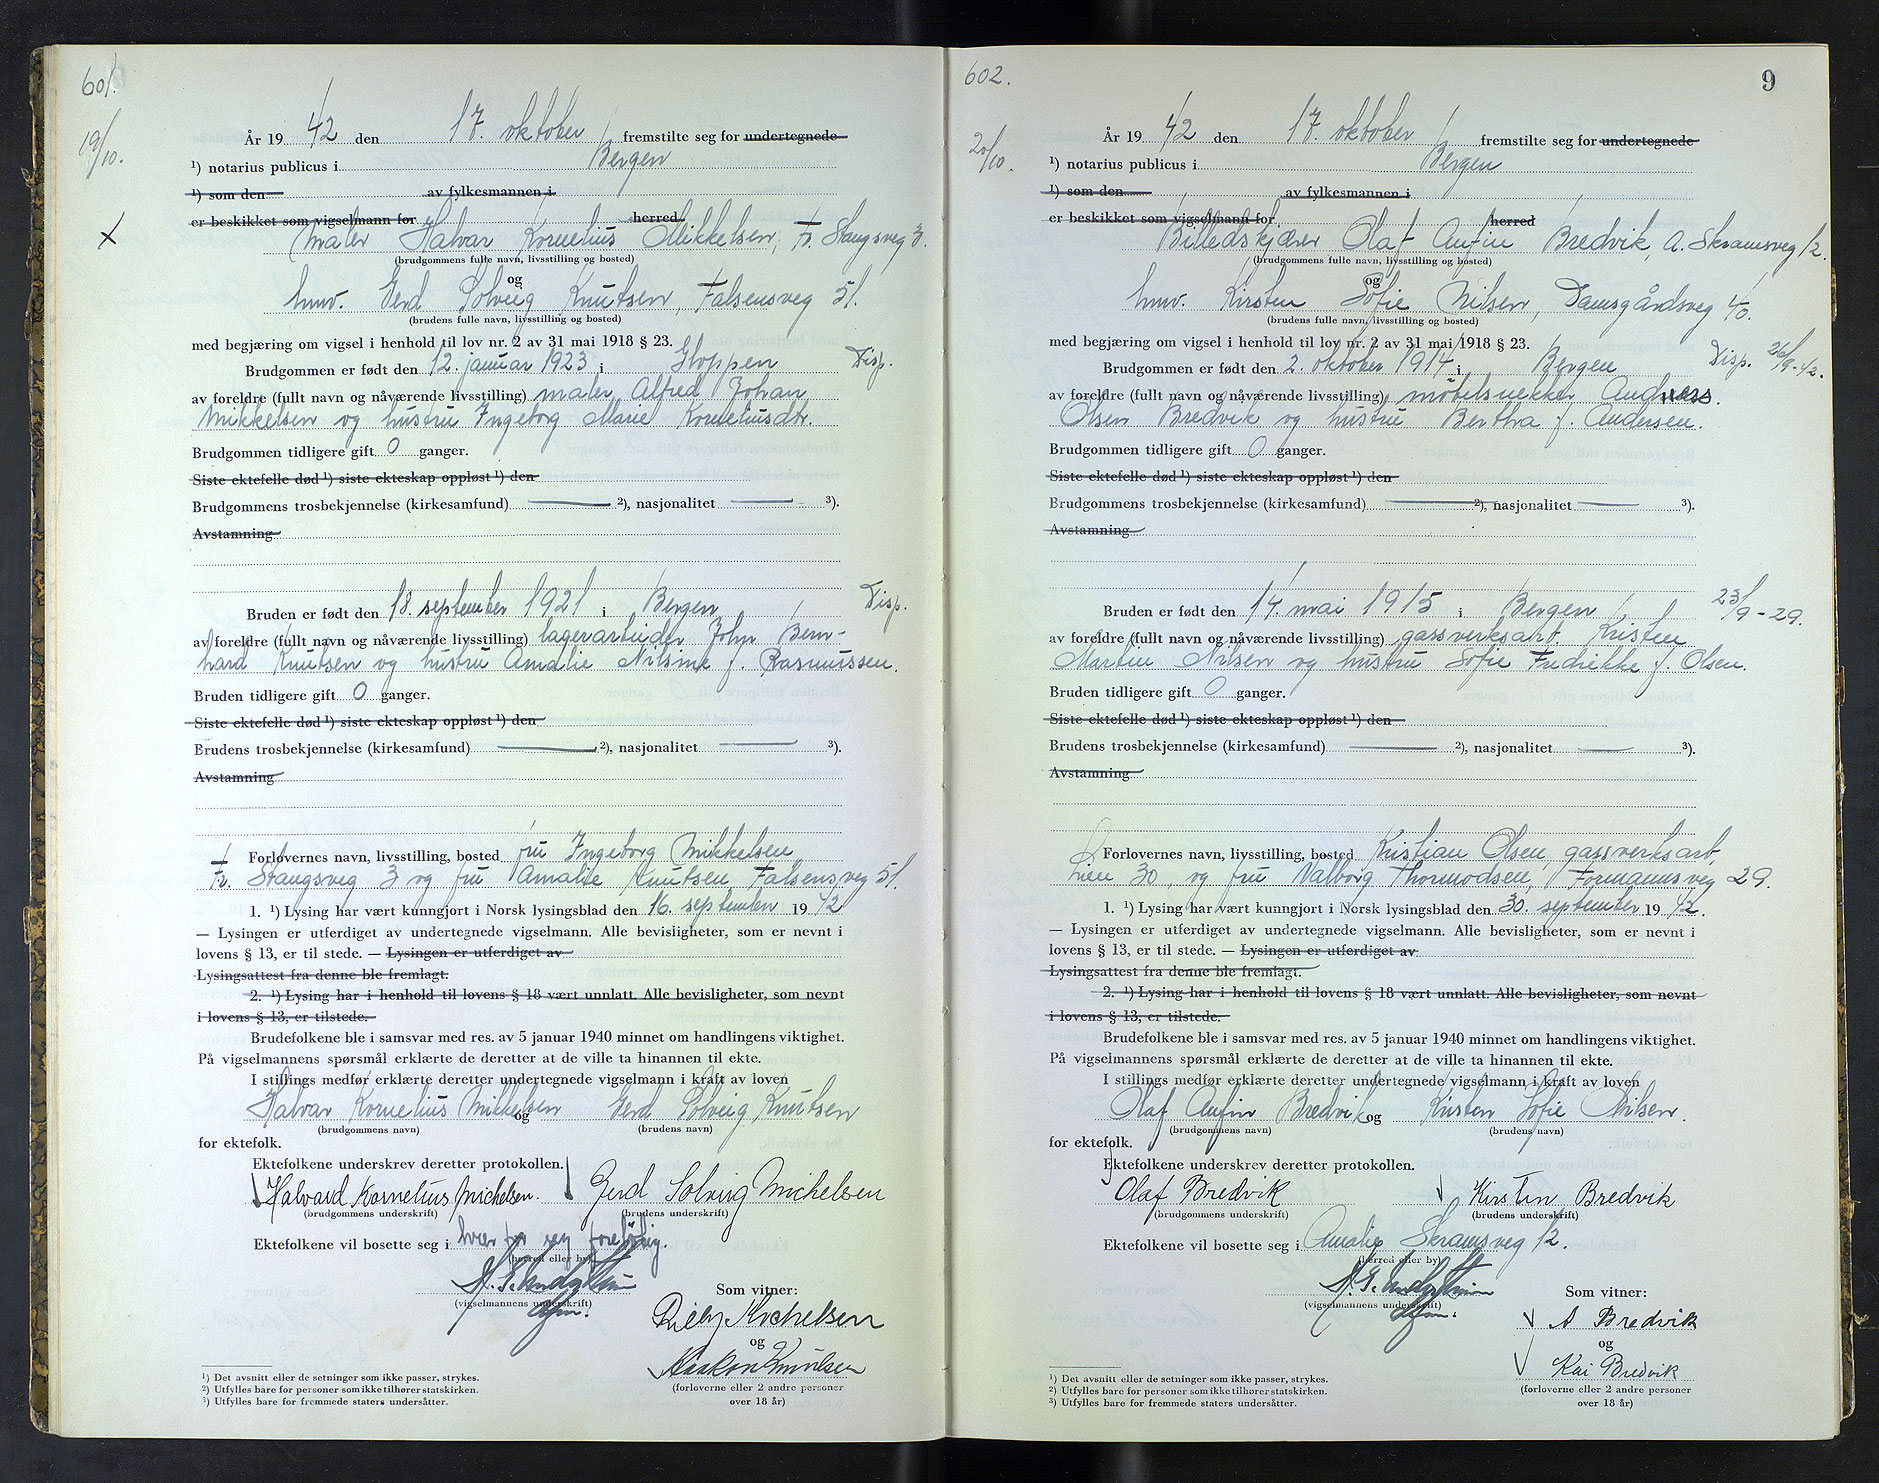 601.
19/10.
År 19 42 den 17. oktober fremstilte seg for undertegnede
¹) notarius publicus i Bergen
¹) som den av fylkesmannen i
er beskikket som vigselmann for herred
Maler Halvar Kornelius Mikkelsen, Fr. Stangsveg 3.
(brudgommens fulle navn, livsstilling og bosted)
og
hmv. Gerd Solveig Knutsen, Falsensveg 51.
(brudens fulle navn, livsstilling og bosted)
med begjæring om vigsel i henhold til lov nr. 2 av 31 mai 1918 § 23.
Brudgommen er født den 12. januar 1923 i Gloppen Disp.
av foreldre (fullt navn og nåværende livsstilling) maler Alfred Johan
Mikkelsen og hustru Ingeborg Marie Korneliusdtr.
Brudgommen tidligere gift 0 ganger.
Siste ektefelle død ¹) siste ekteskap oppløst ¹) den
Brudgommens trosbekjennelse (kirkesamfund) ²), nasjonalitet ³).
Avstamning
Bruden er født den 18. september 1921 i Bergen Disp.
av foreldre (fullt navn og nåværende livsstilling) lagerarbeider John Bern-
hard Knutsen og hustru Amalie Nilsine f. Rasmussen.
Bruden tidligere gift 0 ganger.
Siste ektefelle død ¹) siste ekteskap oppløst ¹) den
Brudens trosbekjennelse (kirkesamfund) ²), nasjonalitet ³).
Avstamning
Forlovernes navn, livsstilling, bosted fru Ingeborg Mikkelsen
Fr. Stangsveg 3 og fru Amalie Knutsen Falsensveg 51.
1. ¹) Lysing har vært kunngjort i Norsk lysingsblad den 16. september 19 42
— Lysingen er utferdiget av undertegnede vigselmann. Alle bevisligheter, som er nevnt i
lovens § 13, er til stede. — Lysingen er utferdiget av
Lysingsattest fra denne ble fremlagt.
2. ¹) Lysing har i henhold til lovens § 18 vært unnlatt. Alle bevisligheter, som nevnt
i lovens § 13, er tilstede.
Brudefolkene ble i samsvar med res. av 5 januar 1940 minnet om handlingens viktighet.
På vigselmannens spørsmål erklærte de deretter at de ville ta hinannen til ekte.
I stillings medfør erklærte deretter undertegnede vigselmann i kraft av loven
Halvar Kornelius Mikkelsen og Gerd Solveig Knutsen
(brudgommens navn) (brudens navn)
for ektefolk.
Ektefolkene underskrev deretter protokollen.
Halvard Kornelius Michelsen. Gerd Solveig Michelsen
(brudgommens underskrift) (brudens underskrift)
Ektefolkene vil bosette seg i hver for seg foreløbig.
(herred eller by)
(vigselmannens underskrift)
Som vitner:
Michelsen
og
Haakon Knutsen
(forloverne eller 2 andre personer
over 18 år)
¹) Det avsnitt eller de setninger som ikke passer, strykes.
²) Utfylles bare for personer som ikke tilhører statskirken.
³) Utfylles bare for fremmede staters undersåtter.
602.
9
20/10.
År 19 42 den 17. oktober fremstilte seg for undertegnede
¹) notarius publicus i Bergen
¹) som den av fylkesmannen i
er beskikket som vigselmann for herred
Billedskjærer Olaf Anfin Bredvik, A. Skramsveg 12.
(brudgommens fulle navn, livsstilling og bosted)
og
hmv. Kirsten Sofie Nilsen, Damsgårdsveg 40.
(brudens fulle navn, livsstilling og bosted)
med begjæring om vigsel i henhold til lov nr. 2 av 31 mai 1918 § 23.
Brudgommen er født den 2. oktober 1914 i Bergen Disp. 26/9-42.
av foreldre (fullt navn og nåværende livsstilling) møbelsnekker Andreas
Olsen Bredvik og hustru Bertha f. Andersen.
Brudgommen tidligere gift 0 ganger.
Siste ektefelle død ¹) siste ekteskap oppløst ¹) den
Brudgommens trosbekjennelse (kirkesamfund) ²), nasjonalitet ³).
Avstamning
Bruden er født den 14. mai 1915 i Bergen 23/9-29.
av foreldre (fullt navn og nåværende livsstilling) gassverksarb. Kristen
Martin Nilsen og hustru Sofie Fredrikke f. Olsen.
Bruden tidligere gift 0 ganger.
Siste ektefelle død ¹) siste ekteskap oppløst ¹) den
Brudens trosbekjennelse (kirkesamfund) ²), nasjonalitet ³).
Avstamning
Forlovernes navn, livsstilling, bosted Kristian Olsen, gassverksarb.
30, og fru Valborg Thormodsen, Formannsveg 29.
1. ¹) Lysing har vært kunngjort i Norsk lysingsblad den 30. september 19 42.
— Lysingen er utferdiget av undertegnede vigselmann. Alle bevisligheter, som er nevnt i
lovens § 13, er til stede. — Lysingen er utferdiget av
Lysingsattest fra denne ble fremlagt.
2. ¹) Lysing har i henhold til lovens § 18 vært unnlatt. Alle bevisligheter, som nevnt
i lovens § 13, er tilstede.
Brudefolkene ble i samsvar med res. av 5 januar 1940 minnet om handlingens viktighet.
På vigselmannens spørsmål erklærte de deretter at de ville ta hinannen til ekte.
I stillings medfør erklærte deretter undertegnede vigselmann i kraft av loven
Olaf Anfin Bredvik og Kirsten Sofie Nilsen.
(brudgommens navn) (brudens navn)
for ektefolk.
Ektefolkene underskrev deretter protokollen.
Olaf Bredvik Kirsten Bredvik
(brudgommens underskrift) (brudens underskrift)
Ektefolkene vil bosette seg i Amalie Skramsveg 12.
(herred eller by)
(vigselmannens underskrift)
Som vitner:
A Bredvik
og
Kai Bredvik
(forloverne eller 2 andre personer
over 18 år)
¹) Det avsnitt eller de setninger som ikke passer, strykes.
²) Utfylles bare for personer som ikke tilhører statskirken.
³) Utfylles bare for fremmede staters undersåtter.